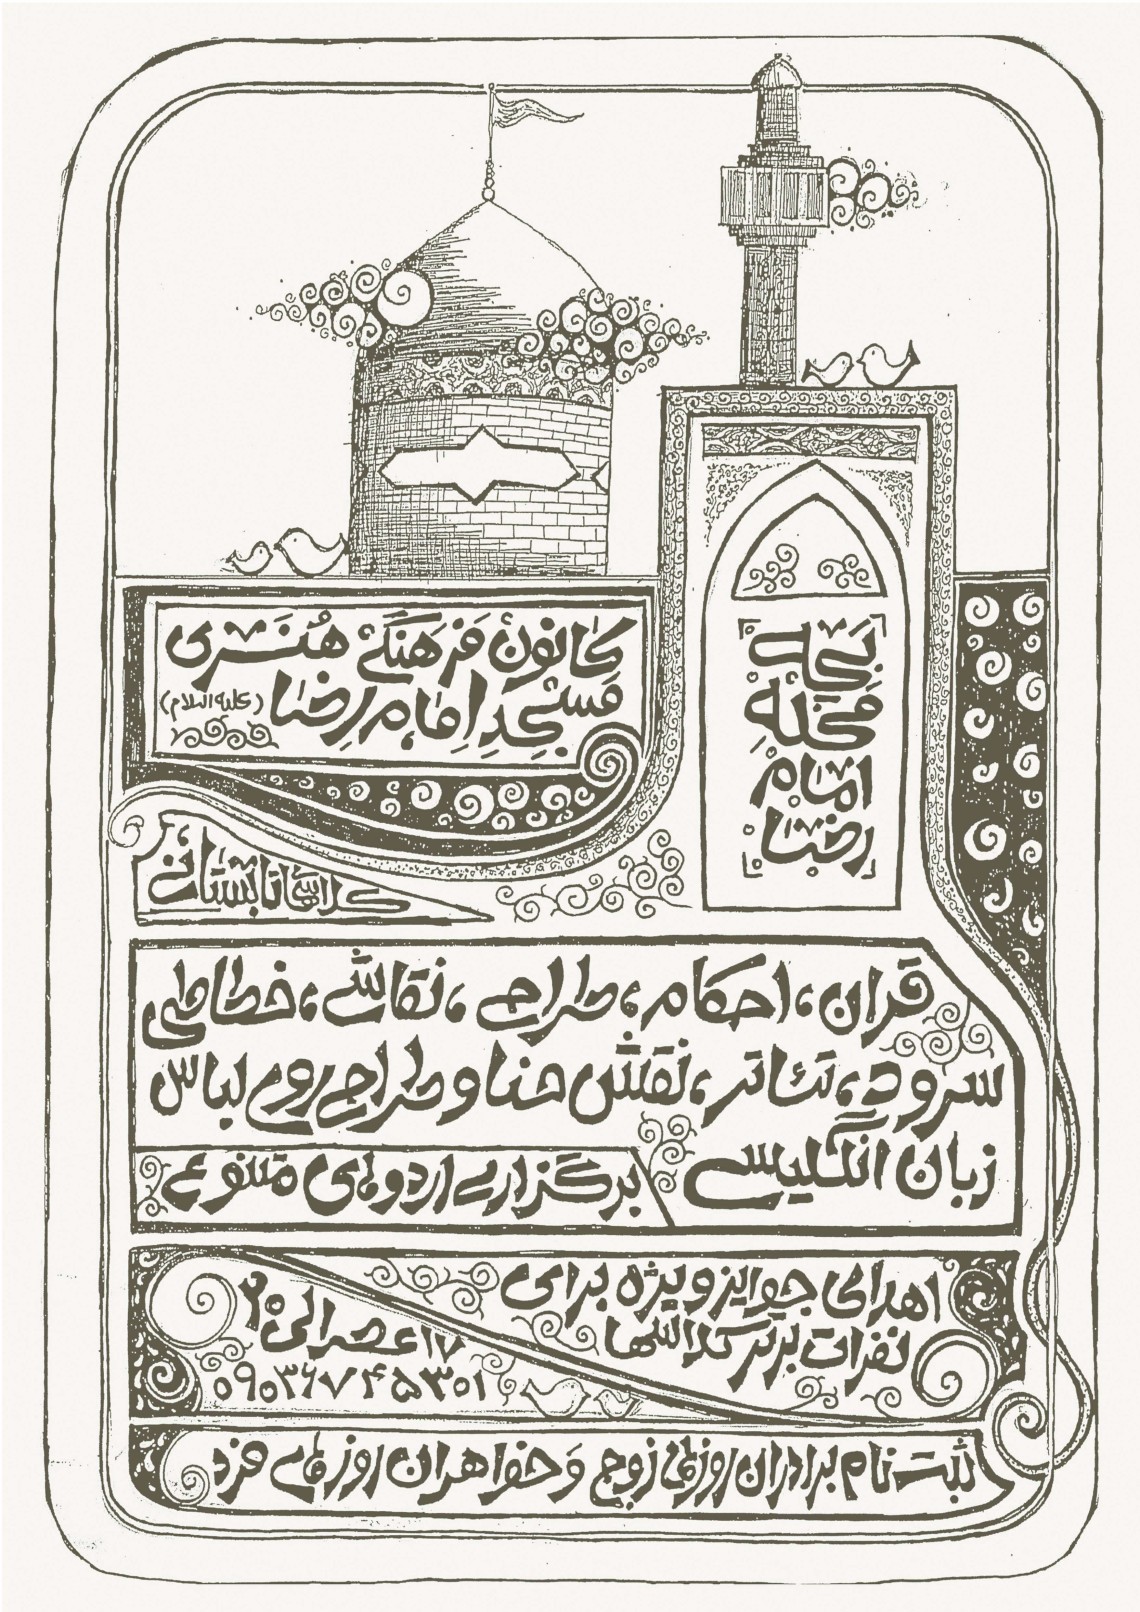 کانون فرهنگی هنری
مسجد امام رضا (علیه السلام)
بچه
محله
امام
رضا
کلاسهای تابستانی
قران، احکام، طراحی، نقاشی، خطاطی
سرود، تئاتر، نقش حنا و طراحی روی لباس
زبان انگلیسی
برگزاری اردوهای متنوع
اهدای جوایز ویژه برای
نفرات برتر کلاسها
۱۷ عصر الی ۲۰
۰۹۰۳۶۷۴۵۳۰۱
ثبت نام برادران روزهای زوج و خواهران روزهای فرد